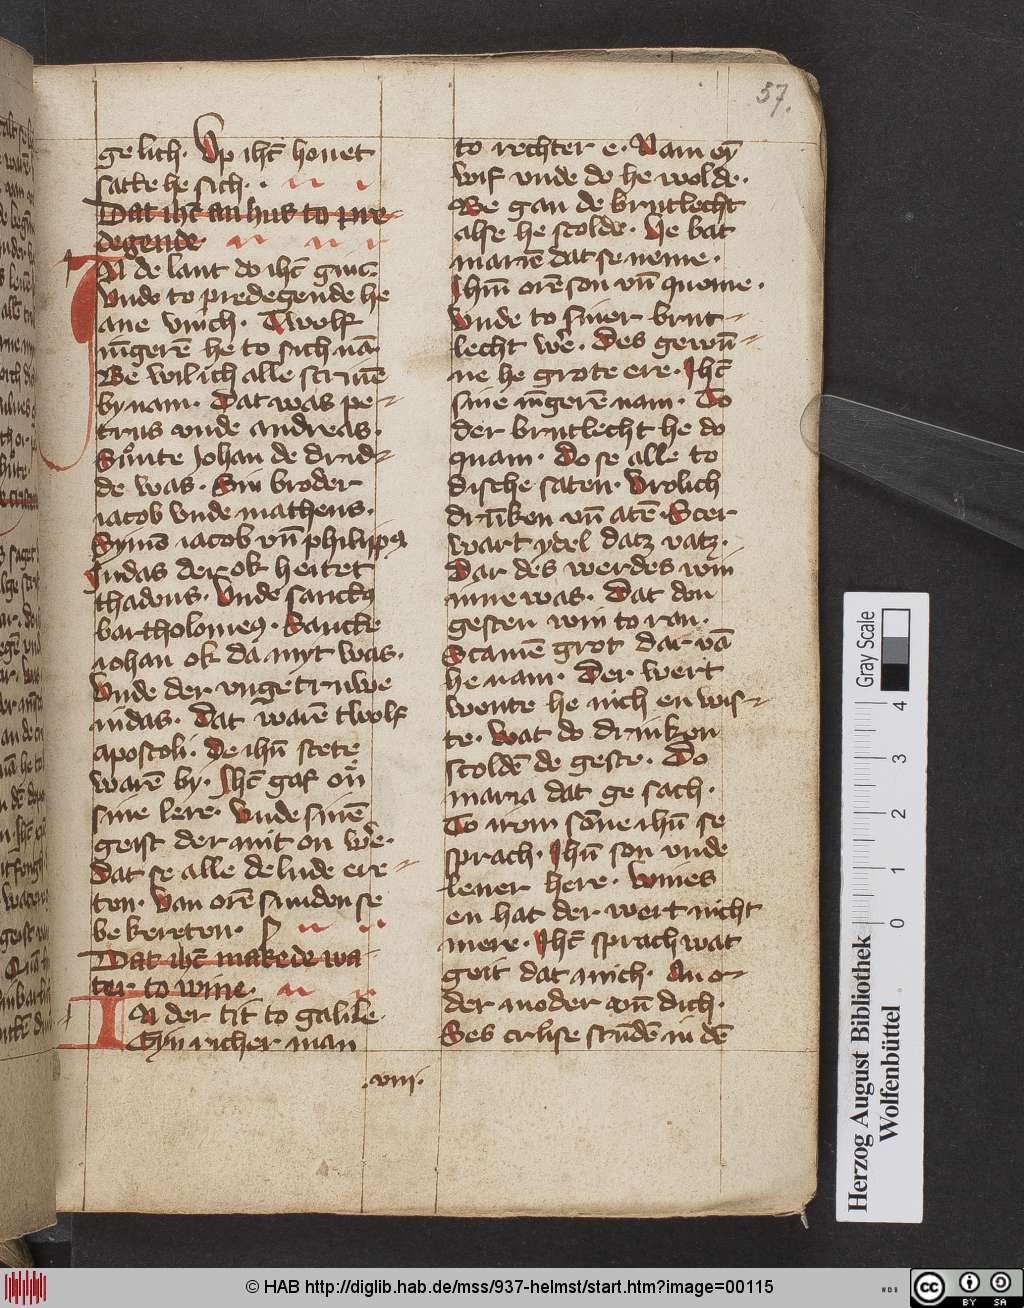 57.
gelich. Vp ihc̄ houet
satte he sich.
Dat ihc̄ an hus to pre
degende
IN de lant do ihc̄ ginc
Vnde to predegende he
ane vinch. Twolf
iūgerē he to sich nā.
We wil ich alle scriuē
by nam. Dat was pe-
trus vnde andreas.
Sůnte Johan de drud-
de was. Sin broder
iacob vnde matheus.
Symō iacob vn̄ philipp9
Judas der ok heitet
thadeus. Vnde sanct9
bartholome9. Sancte
iohan ok da myt was.
Vnde der vngetruwe
iudas. Dat warē twolf
apostoli. De ihū stete
warē by. Ihc̄ gaf on̄
sine lere. Vnde sinē
geist der mit on we.
Dat se alle de lude ere-
ten. Van orē sunden se
bekereten.
Dat ihc̄ makede wa
ter to wine.
IN der tit to galile
Eyn richer man
.viii.
to rechter e. Nam eȳ
wif vnde do he wolde.
We gan de brutlecht
alse he scolde. He bat
mariē dat se neme.
Ihm̄ orē son vn̄ queme.
Vnde to siner brut-
lecht we. Des gewū-
ne he grote ere. Ihc̄
sine iūgerē nam. To
der brutlecht he do
quam. Do se alle to
dische saten. Vrolich
drūken vn̄ atē. Scer
wart ydel datz vatz.
Dar des werdes win
inne was. Dat den
gesten win to ran.
Scamē grot dar vā
he nam. Der wert
wente he nich en wis-
te. Wat do drinken
scoldē de geste. Do
maria dat ge sach.
To irem sōne ihū se
sprach. Ihū son vnde
leuer here. Wines
en hat der wert nicht
mere. Ihc̄ sprach wat
geit dat mich. An o-
der moder vn̄ dich.
Ses crůse stūdē in dē
Gray Scale
0 1 2 3 4
Herzog August Bibliothek
Wolfenbüttel
© HAB http://diglib.hab.de/mss/937-helmst/start.htm?image=00115
WDB
cc BY SA